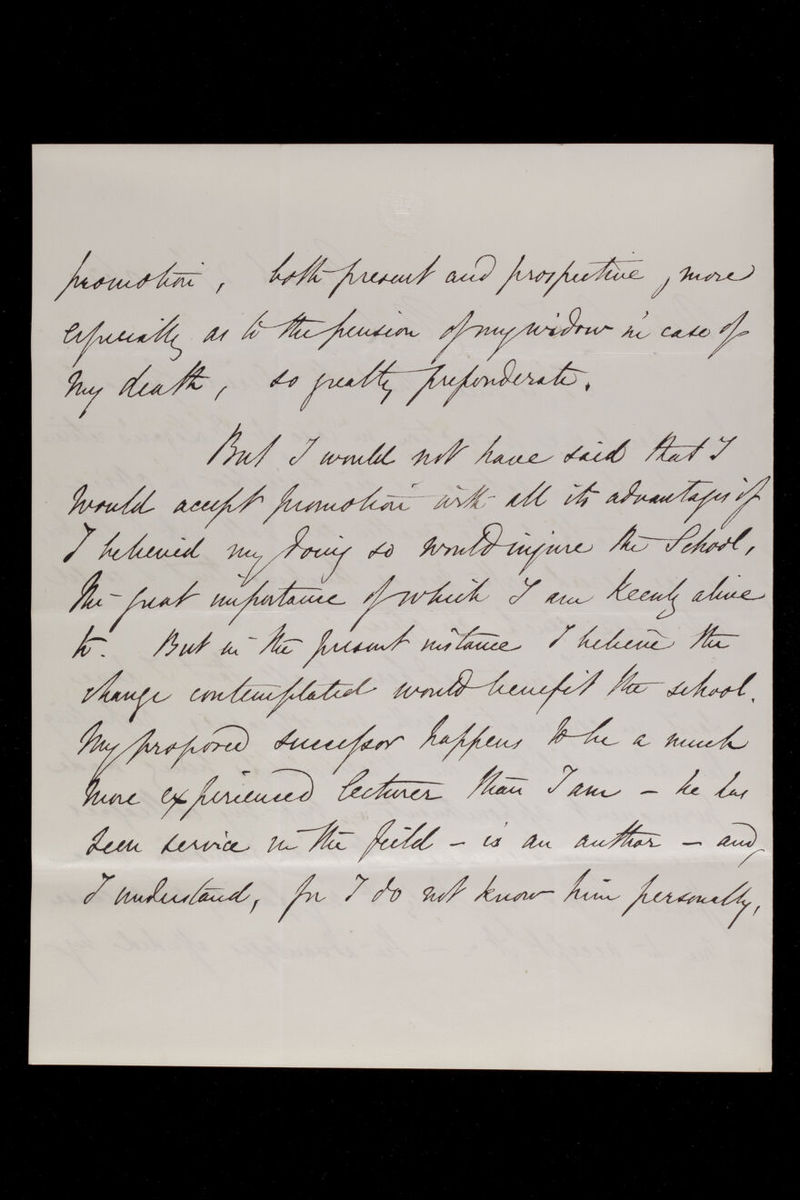 promotion, both present and prospective, more
especially as to the pension of my widow in case of
my death, so greatly preponderate.
But I would not have said that I
would accept promotion with all its advantages if
I believed my doing so would injure the School,
the great importance of which I am keenly alive
to. But in the present instance I believe the
change contemplated would benefit the school.
My proposed successor happens to be a much
more experienced lecturer than I am – he has
seen service in the feild – is an author – and,
I understand, for I do not know him personally,